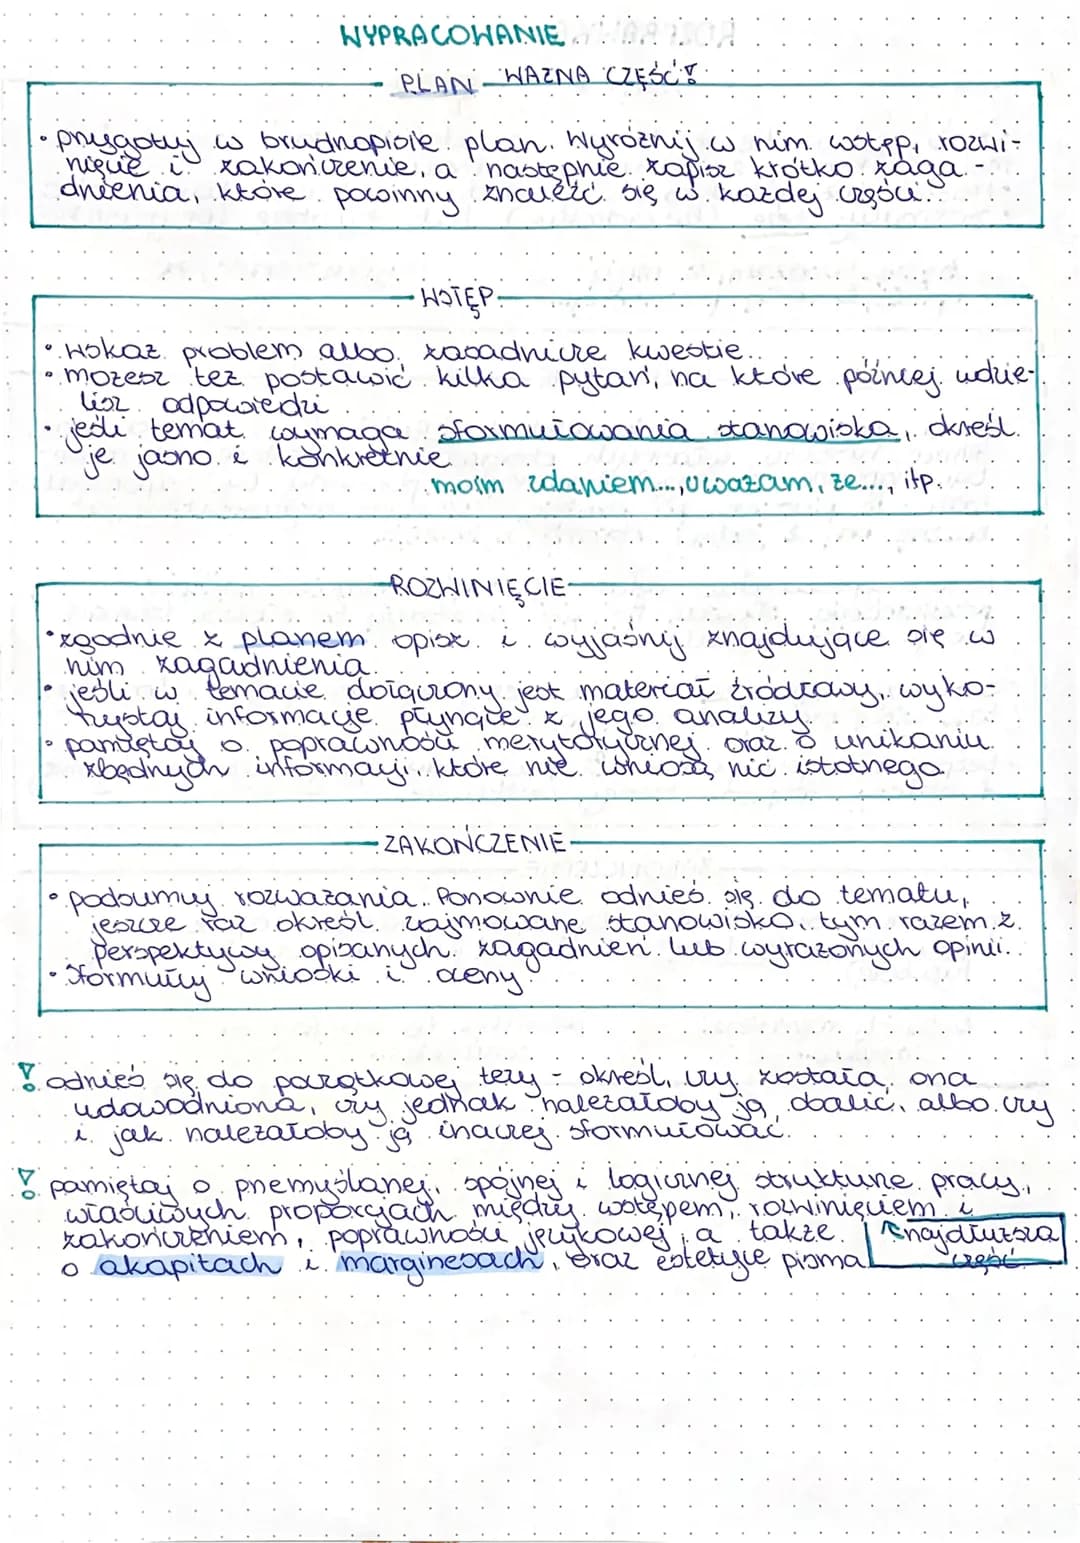 WYPRACOWANIE
PLAN - WAŻNA CZĘŚĆ!
• przygotuj w brudnopisie plan. Wyróżnij w nim wstęp, rozwi-
nięcie i zakończenie, a następnie zapisz krótko zaga-
dnienia, które powinny znaleźć się w każdej części.
WSTĘP
• wskaż problem albo zasadnicze kwestie.
• możesz też postawić kilka pytań, na które później udzie-
lisz odpowiedzi
• jeśli temat wymaga sformułowania stanowiska, określ
je jasno i konkretnie
moim zdaniem..., uważam, że..., itp.
ROZWINIĘCIE
• zgodnie z planem opisz i wyjaśnij znajdujące się w
nim zagadnienia.
• jeśli w temacie dołączony jest materiał źródłowy, wyko-
rzystaj informacje płynące z jego analizy.
• pamiętaj o poprawności merytorycznej oraz o unikaniu
zbędnych informacji, które nie wniosą nic istotnego
ZAKOŃCZENIE
• podsumuj rozważania. Ponownie odnieś się do tematu,
jeszcze raz określ zajmowane stanowisko, tym razem z
perspektywy opisanych zagadnień lub wyrażonych opinii.
• sformułuj wnioski i oceny.
! odnieś się do początkowej tezy - określ, czy została ona
udowodniona, czy jednak należałoby ją obalić, albo czy
i jak należałoby ją inaczej sformułować.
! pamiętaj o przemyślanej, spójnej i logicznej strukturze pracy,
właściwych proporcjach między wstępem, rozwinięciem i
zakończeniem, poprawności językowej, a także
o akapitach i marginesach, oraz estetyce pisma
najdłuższa
część